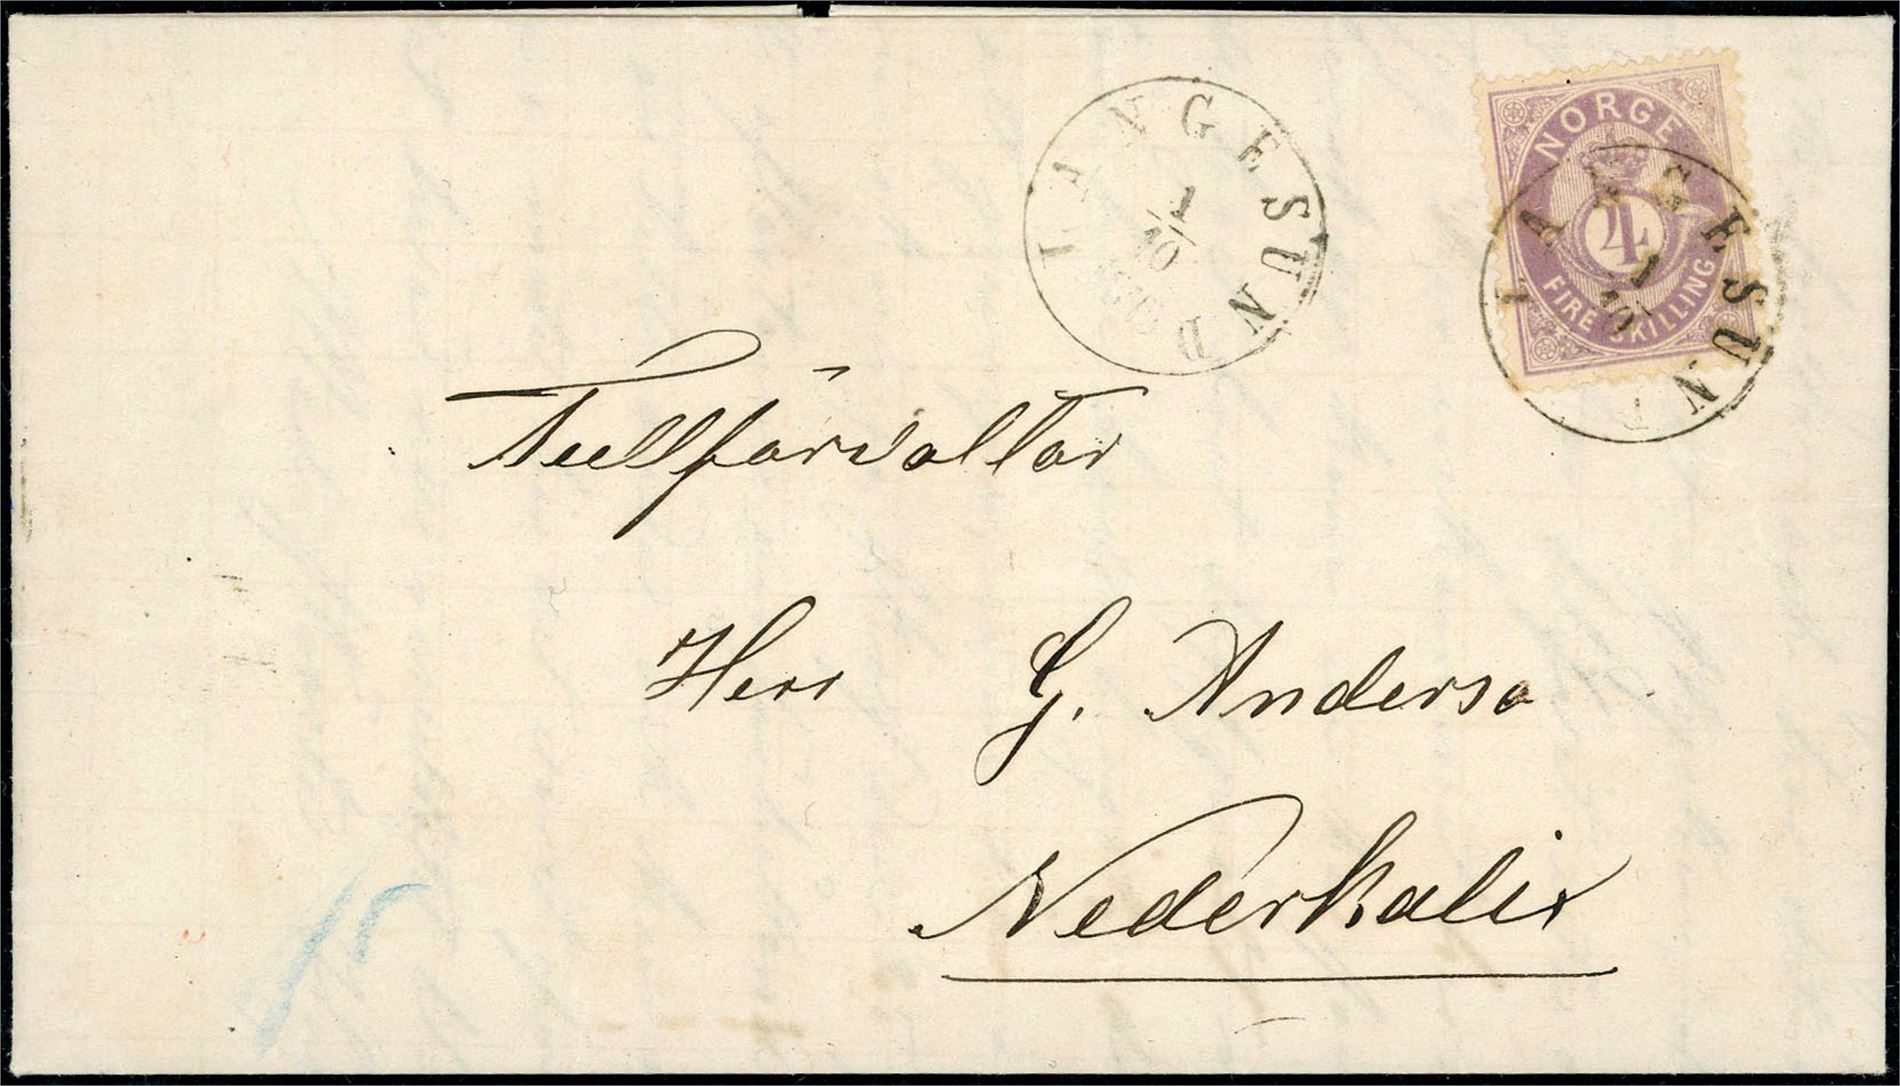 LANGESUND
1
10
NORGE
4
FIRE SKILLING
LANGESUND
1
10
Tullförvaltar
Herr G. Anderso
Nederkalix